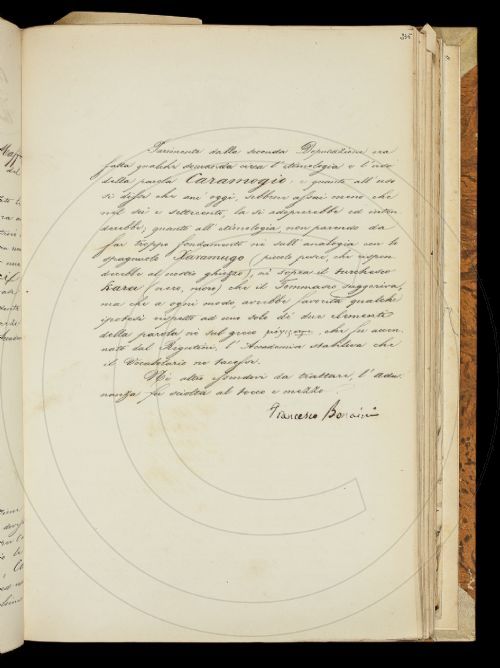 235
Parimente dalla seconda Deputazione era
fatta qualche domanda circa l'etimologia e l'uso
della parola Caramogio; e quanto all'uso
si disse che ani oggi, sebbene assai meno che
nel sei e settecento, la si adoprerebbe ed inten
derebbe; quanto all'etimologia non parendo da
far troppo fondamento nè sull'analogia con lo
spagnuolo Xaramugo (piccolo pesce, che rispon
derebbe al nostro ghiozzo), nè sopra il turchesco
Kara (nero, moro), che il Tommaseo suggeriva,
ma che a ogni modo, avrebbe favorita qualche
ipotesi rispetto ad uno solo de' due elementi
della parola nè sul greco, che fu accen
nato dal Rigutini, l'Accademia stabiliva che
il Vocabolario ne tacesse.
Nè altro essendovi da trattare, l'Adu
nanza fu sciolta al tocco e mezzo
Francesco Bonaini